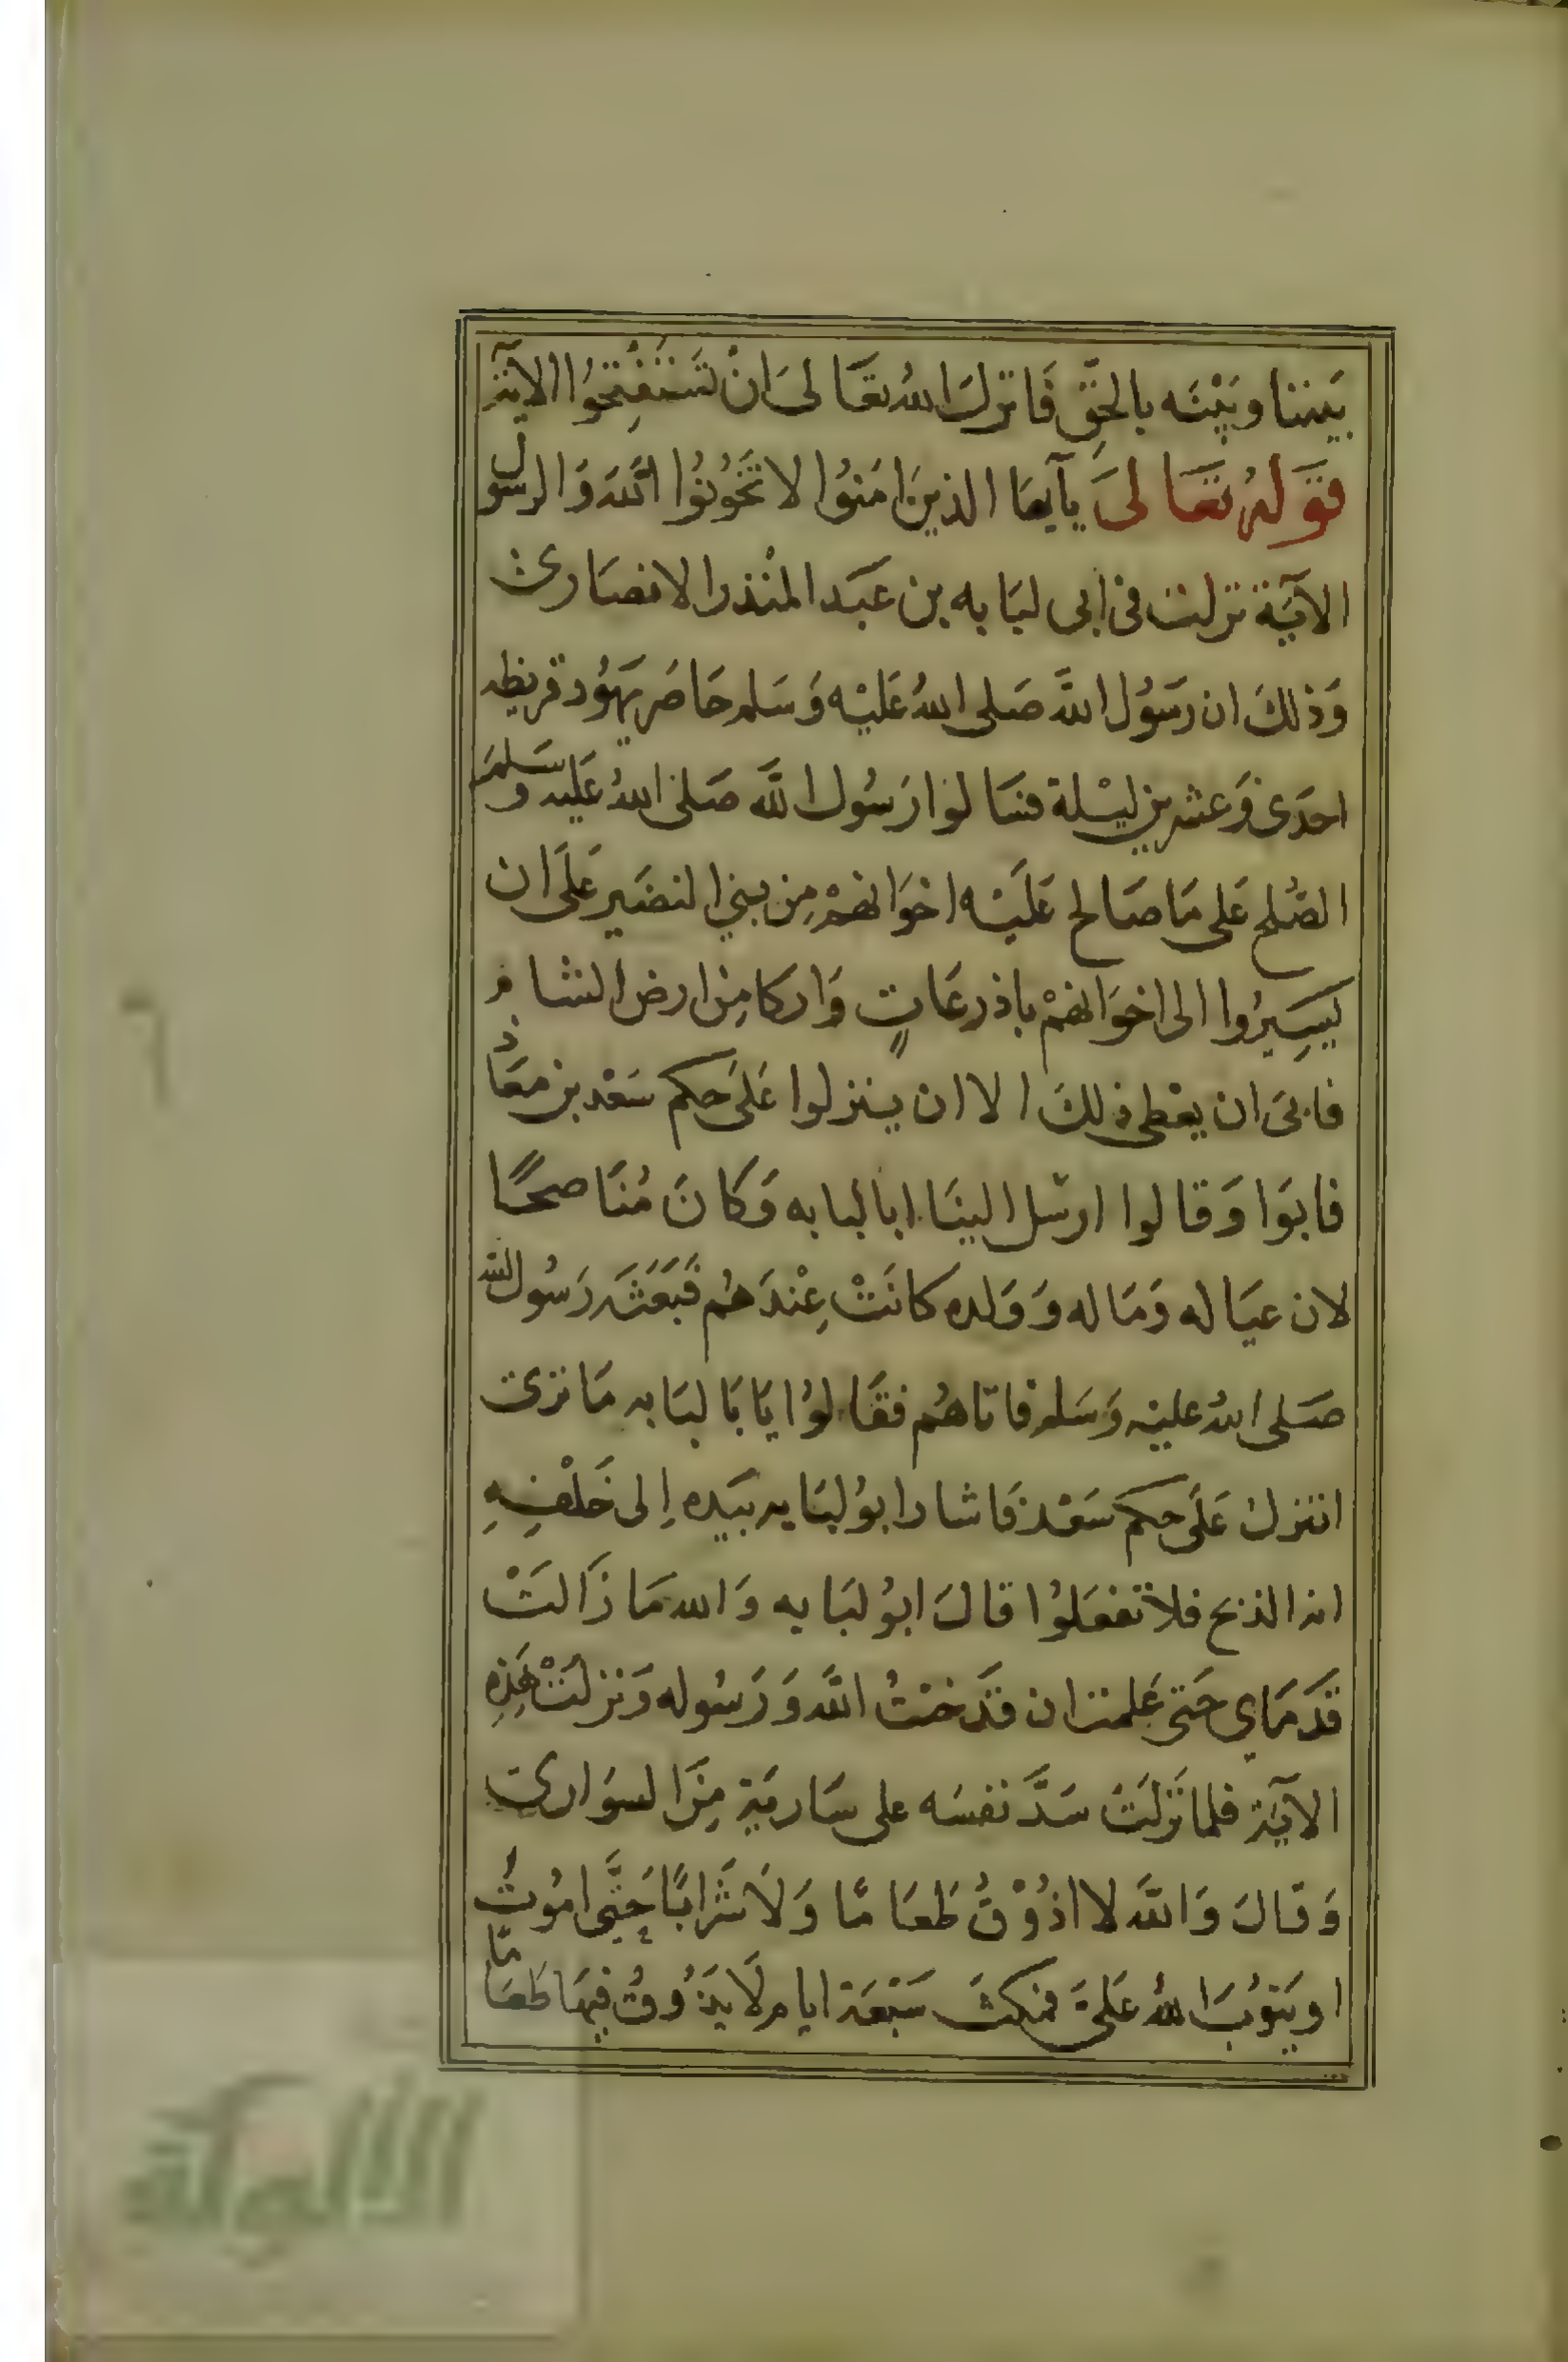 بَيننا وبَيْنَه بالحَقِّ فَانزلَ اللهُ تعَالىَ انْ تَسْتَفْتِحُوُا الايَة
قَولهُ تعَالىَ يآيهَا الذينَ امَنوُا لا تَخُوُنوُا اللهَ وَالرسُول
الآيَة نزلت فى ابى لبَابه بن عَبَد المنْذر الانصَارى
وَذلكَ ان رَسَوُل اللهَ صَلى اللهُ عَليْه وَسَلم حَاصَر يهَوُد قريظه
احدَى وَعشرين ليْلة فسَالوا رَسُول اللهَ صَلى اللهُ عَليه وسَلمَ
الصُلح عَلى مَا صَالح عَلَيْه اخوَانهمْ مِن بني النضَير عَلَى ان
يَسِيرُوا الى اخوَانهمْ باذرعَاتٍ وَاركا مِن ارض الشام
فابىَ ان يعْطى ذلكَ الا ان ينزلوا عَلىَ حكم سَعْد بن معَاذ
فابوَا وَقالوا ارسْل الينَا ابالبابه وَكانَ مُنَاصحًا
لان عيَاله وَمَاله وَوَلده كانَتْ عِنْدَهُم فَبَعَثَه رَسُول الله
صَلى اللهُ عليْه وَسَلم فاتاهُم فقَالوُا يَابَا لبَابه مَا ترىَ
انتزل عَلَى حكم سَعْد فَاشار ابوُلبَابه بيَده اِلى خَلْفِهِ
انه الذبح فلا تفعَلوُا قالَ ابوُ لبَابه وَالله مَا زَالتْ
قدَمَاي حَتى عَلمت ان قدَ خنتُ اللهَ وَرَسُوله وَنزلتْ هَذِهِ
الآيَة فلما نَزلَتَ سَدَّ نفسَه على سَاريَة مِنَ السوَارى
وَقالَ وَاللهَ لا اذُوْقُ طَعَامًا وَلَا شَرَابًا حَتَّى امُوتُ
او يَتوُبَ اللهُ عَلىَ فمَكثَ سَبْعَة ايام لَا يَذُوقُ فيهَا طَعَامًا
الألوكة